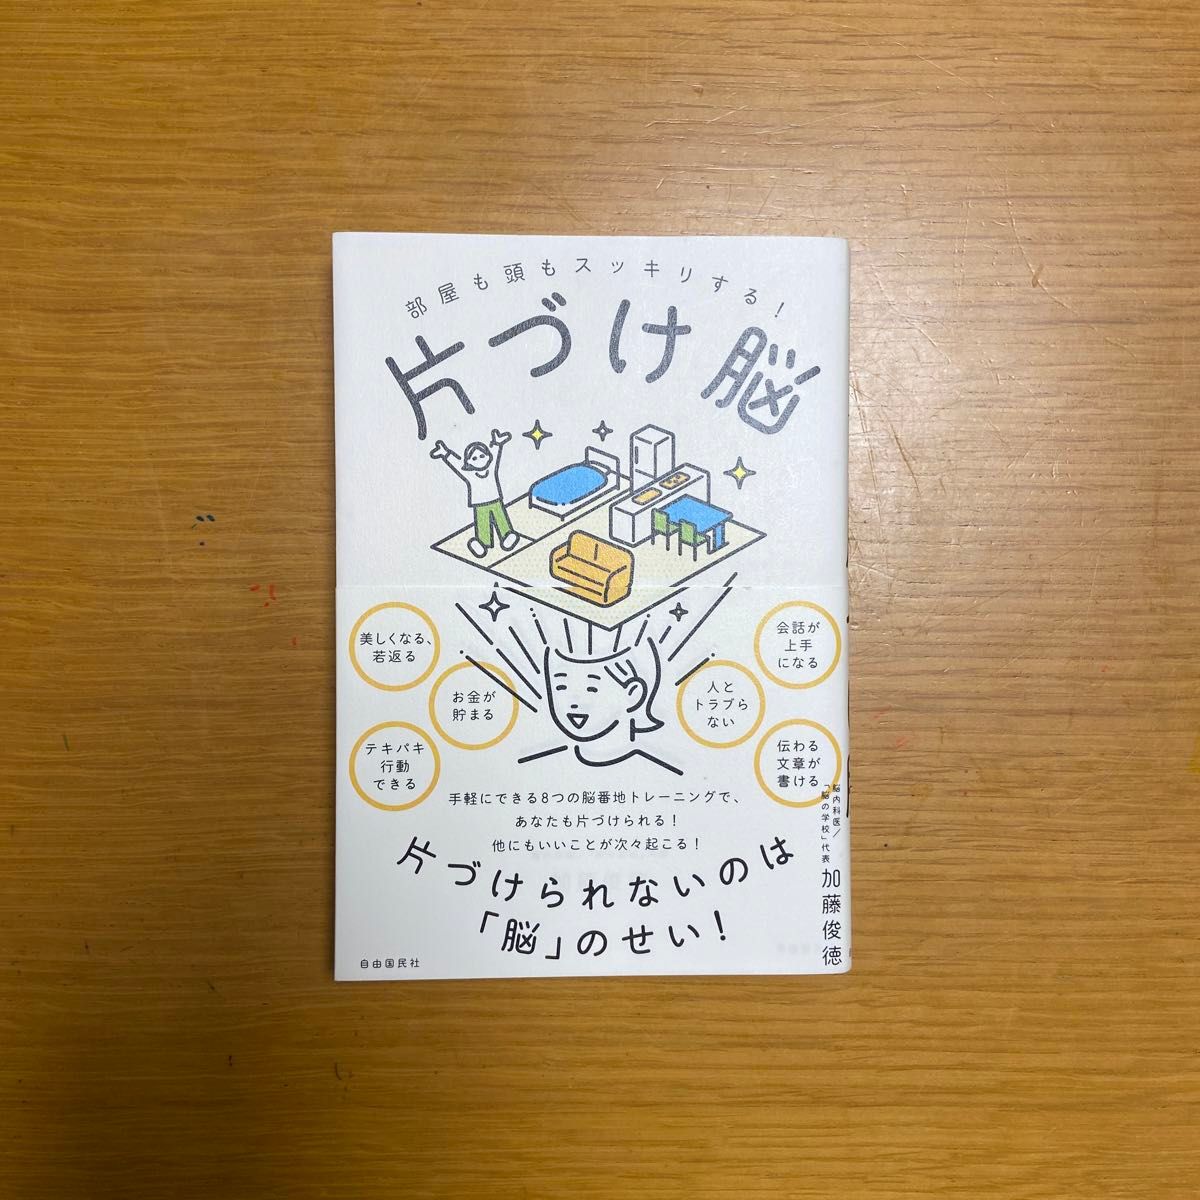 部屋も頭もスッキリする！
片づけ脳
美しくなる、
若返る
お金が
貯まる
テキパキ
行動
できる
会話が
上手
になる
人と
トラブら
ない
伝わる
文章が
書ける
手軽にできる8つの脳番地トレーニングで、
あなたも片づけられる！
他にもいいことが次々起こる！
片づけられないのは
「脳」のせい！
脳内科医／
「脳の学校」代表
加藤俊徳
自由国民社